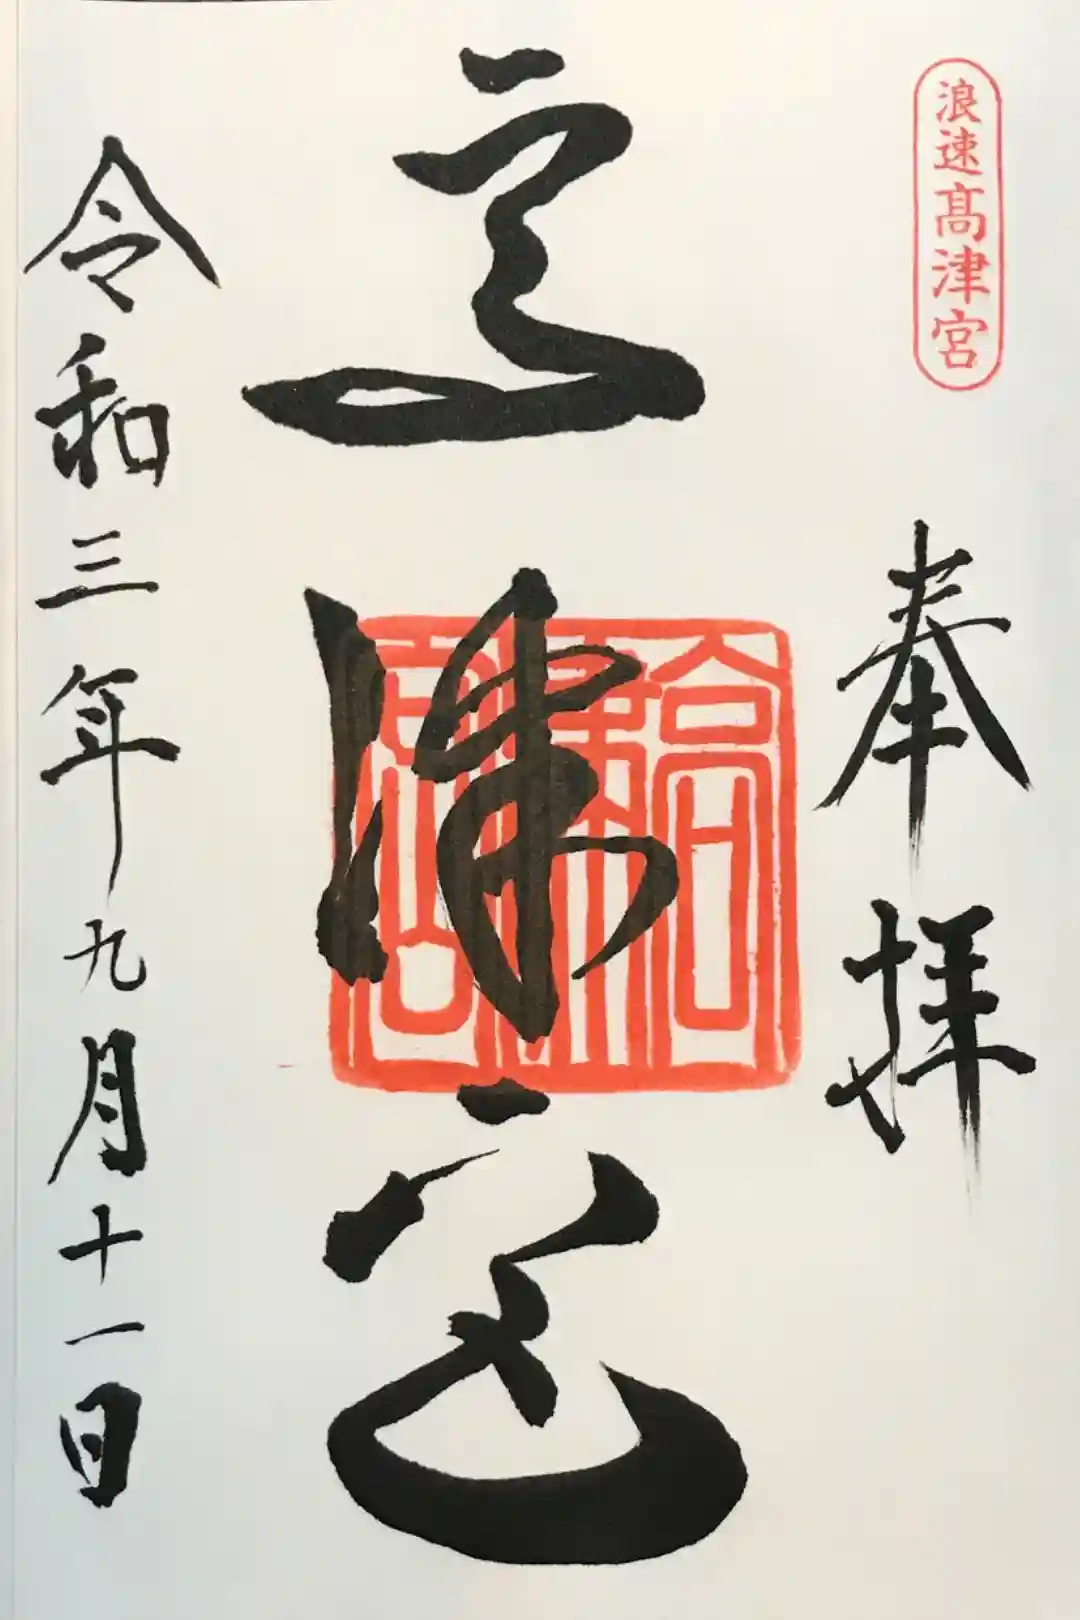 浪速髙津宮
奉拝
高津宮
高津宮
令和三年九月十一日